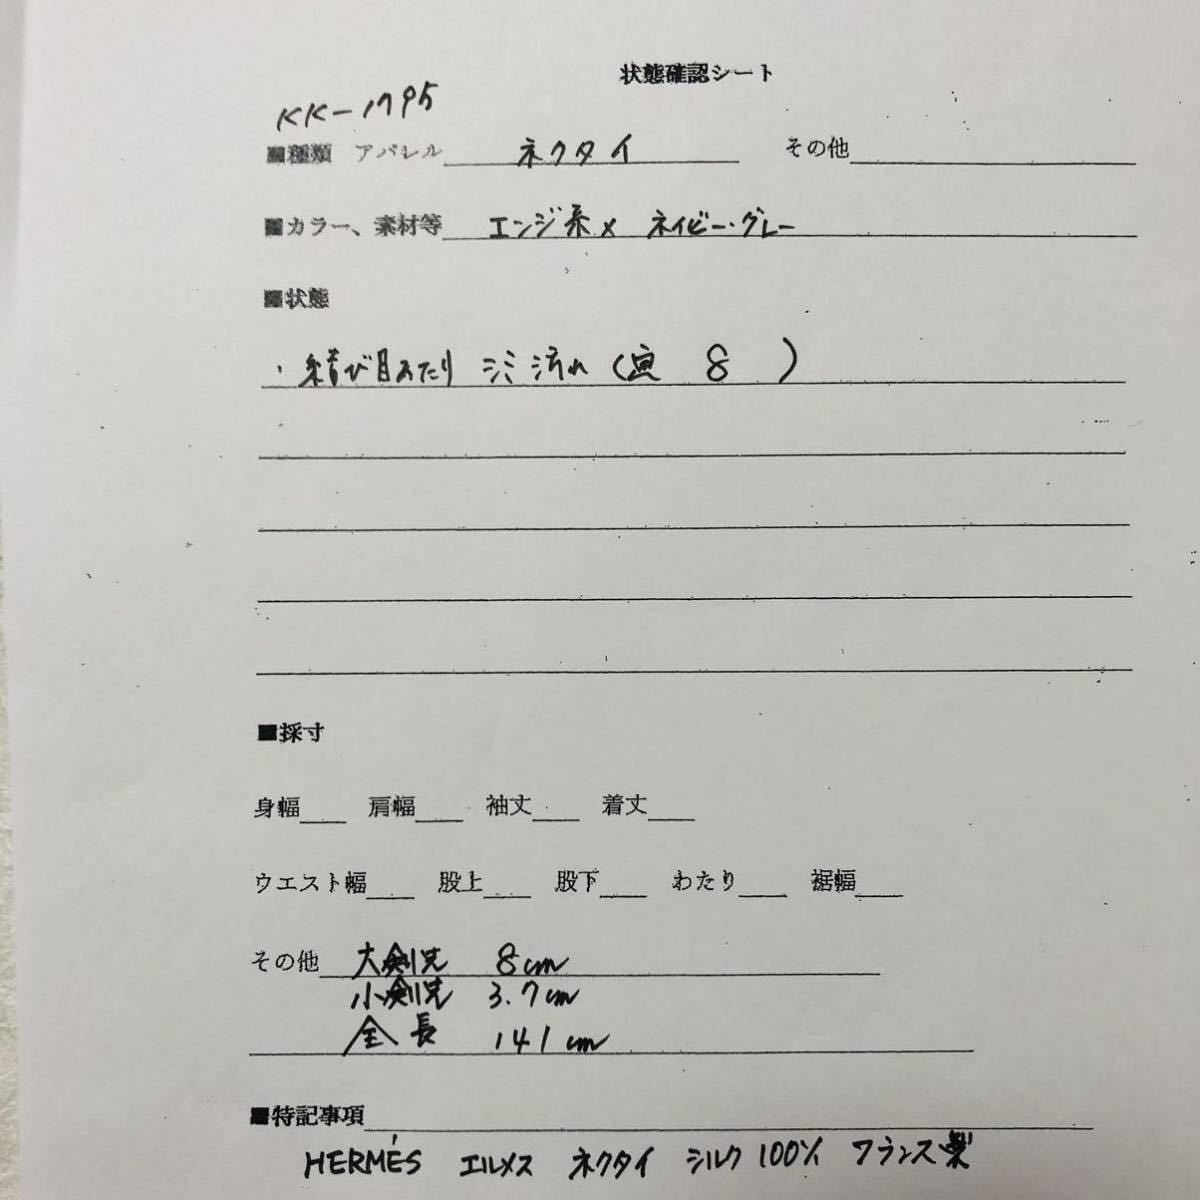 状態確認シート
KK-1795
■種類 アパレル ネクタイ その他
■カラー、素材等 エンジ系×ネイビー・グレー
■状態
・結び目あたり シミ汚れ(画 8 )
■採寸
身幅 肩幅 袖丈 着丈
ウエスト幅 股上 股下 わたり 裾幅
その他 大剣先 8cm
小剣先 3.7cm
全長 141cm
■特記事項
HERMÉS エルメス ネクタイ シルク100% フランス製